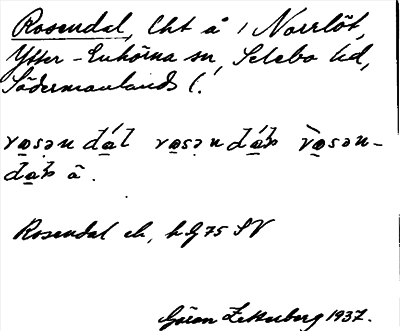 Rosendal, lht å i Norrlöt,
Ytter-Enhörna sn, Selebo hd,
Södermanlands l.
rosən dál rosən
Rosendal ek, hG75 SV
Göran Zetterberg 1937.